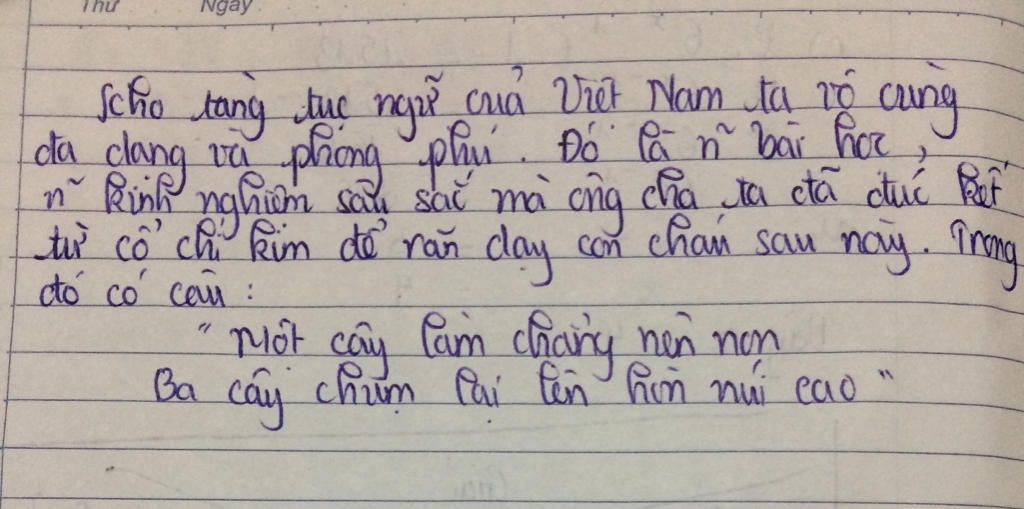 Thứ Ngày
Kho tàng tục ngữ của Việt Nam ta vô cùng
đa dạng và phong phú. Đó là n~ bài học,
n~ kinh nghiệm sâu sắc mà ông cha ta đã đúc kết
từ cổ chí kim để răn dạy con cháu sau này. Trong
đó có câu :
" Một cây làm chẳng nên non
Ba cây chụm lại lên hòn núi cao "